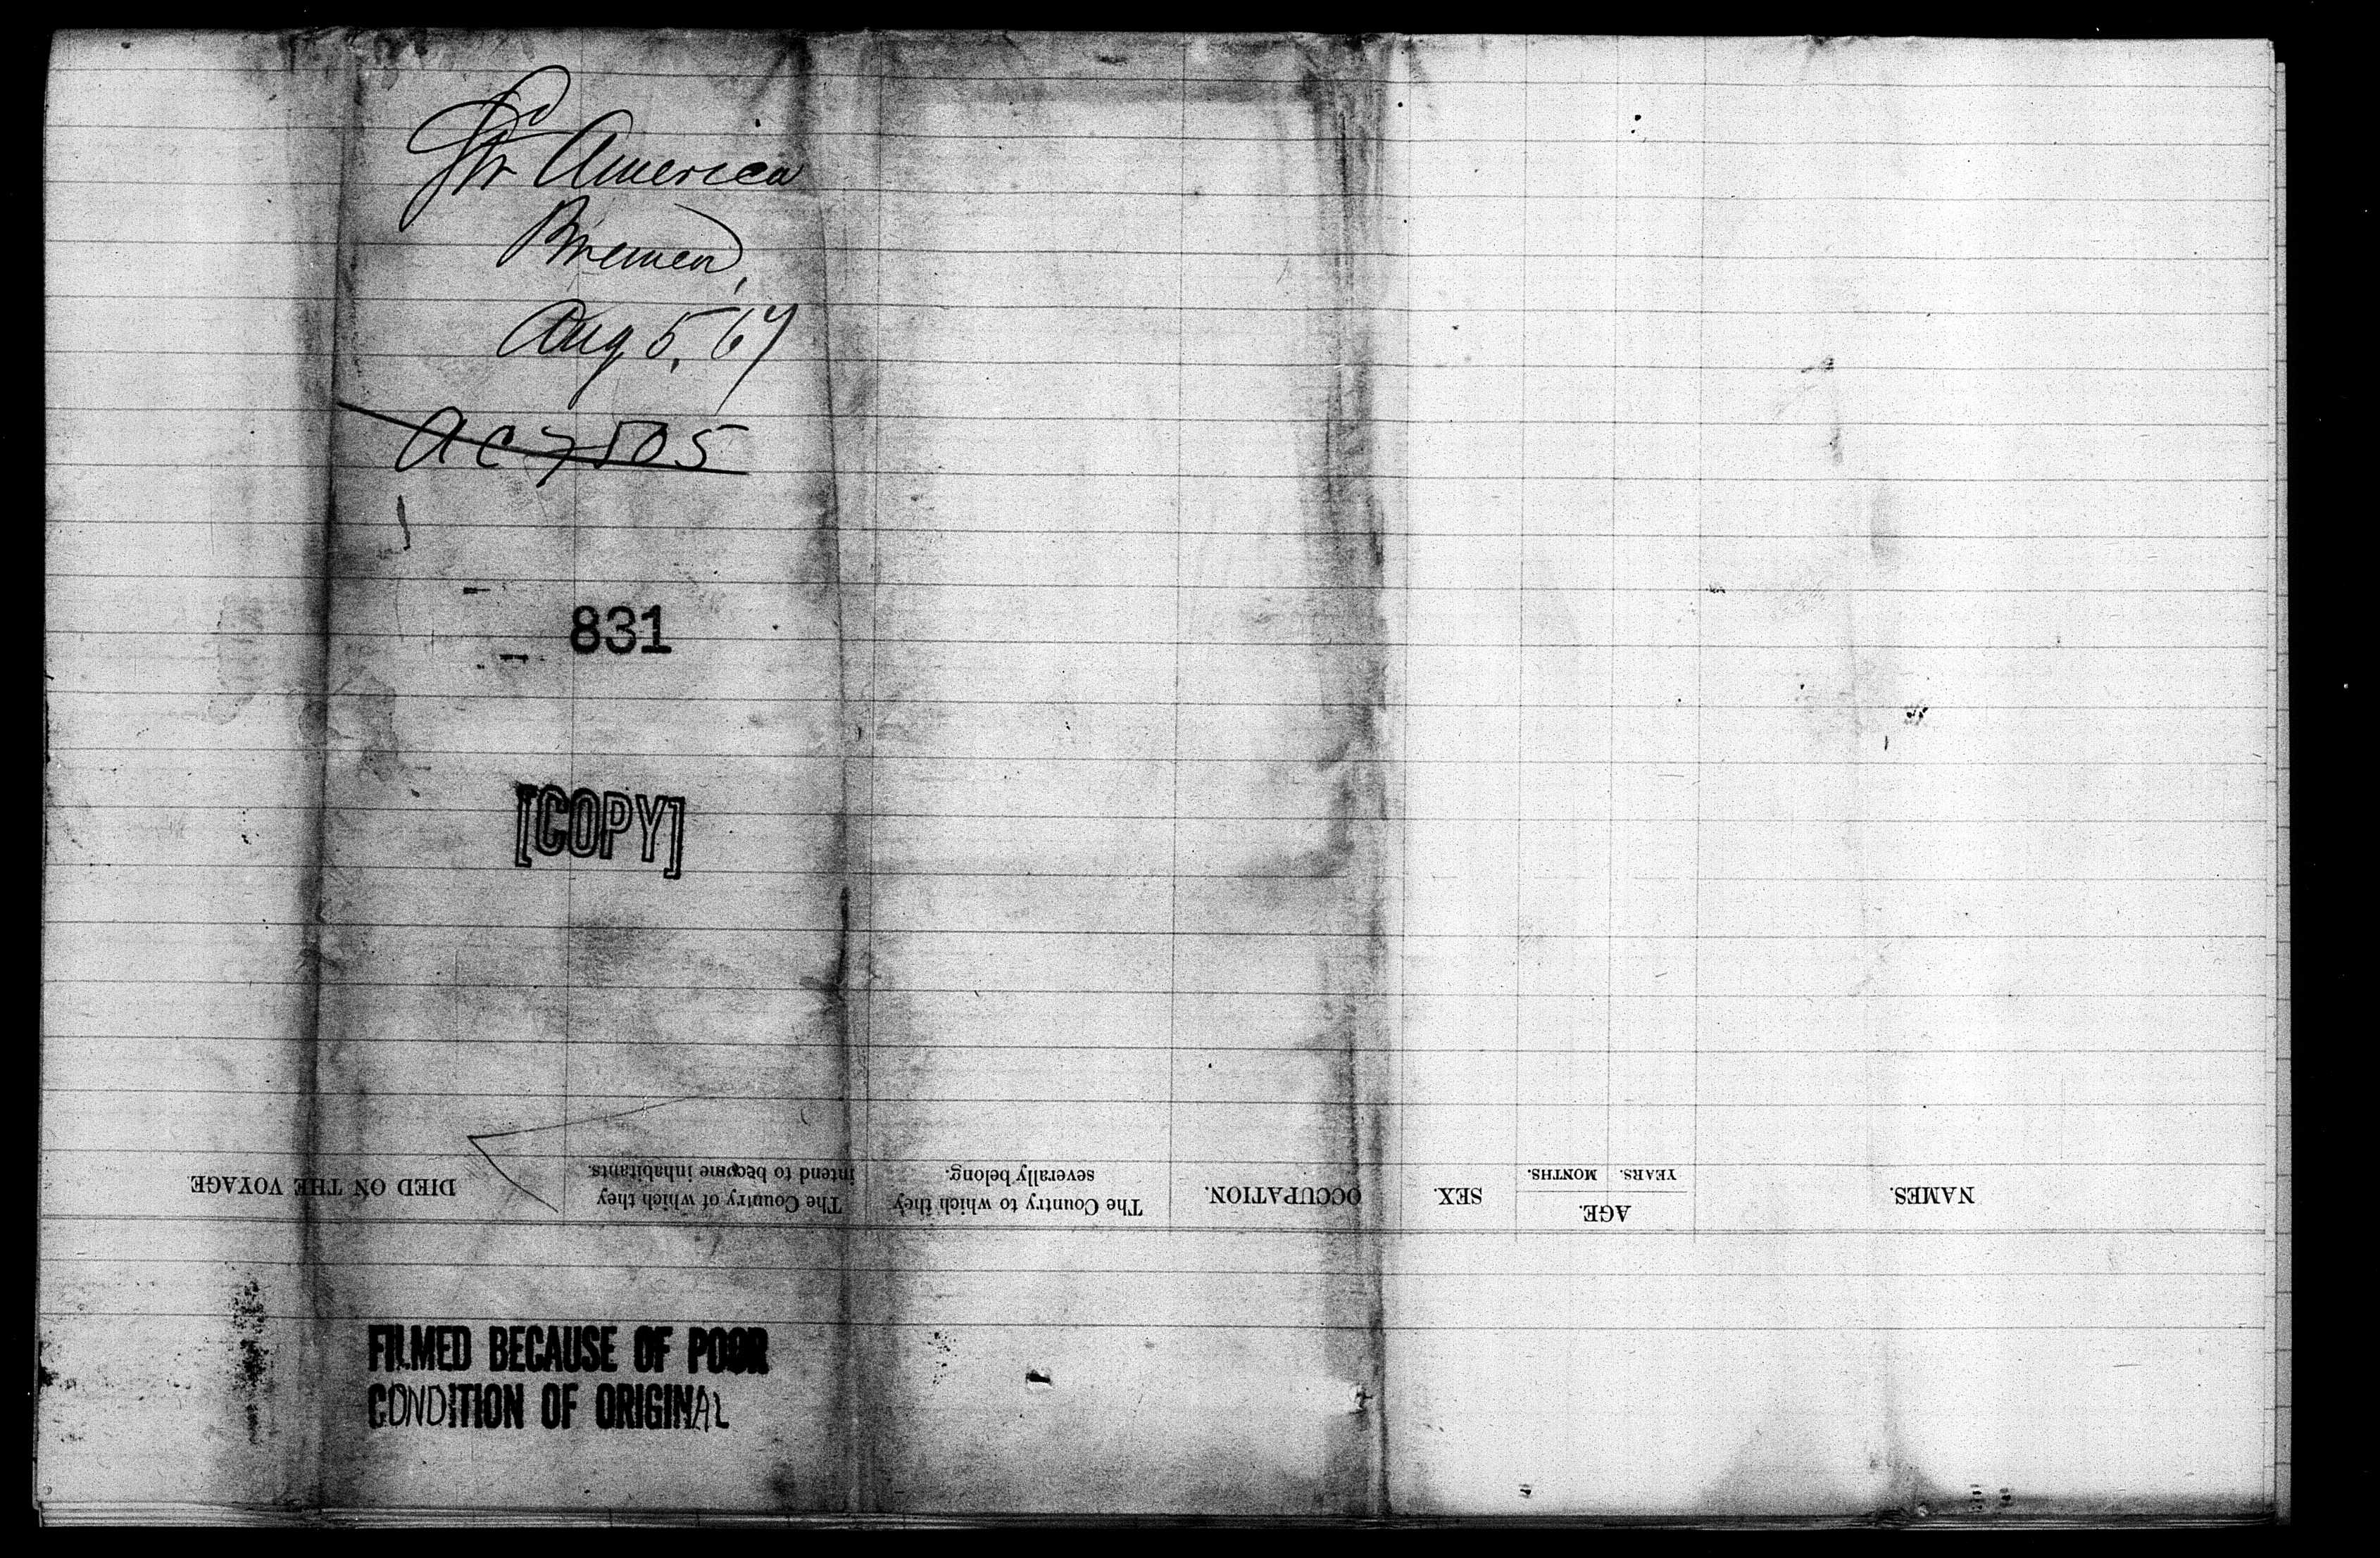 Str America
Bremen,
Aug 5, 67
ac 7505
831
[COPY]
DIED ON THE VOYAGE
The Country of which they
intend to become inhabitants.
The Country to which they
severally belong.
OCCUPATION.
SEX.
AGE.
YEARS. MONTHS.
NAMES.
FILMED BECAUSE OF POOR
CONDITION OF ORIGINAL